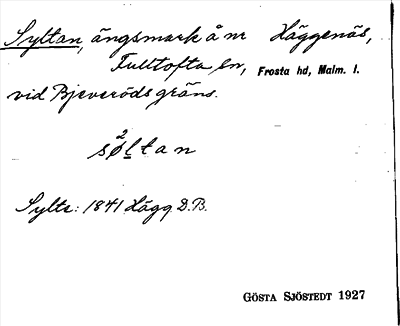 Syltan, ängsmark å nr Häggenäs,
Fulltofta sn, Frosta hd, Malm. l.
vid Bjeveröds gräns.
2
søltan
Sylte: 1841 Hägg D.B.
GÖSTA SJÖSTEDT 1927